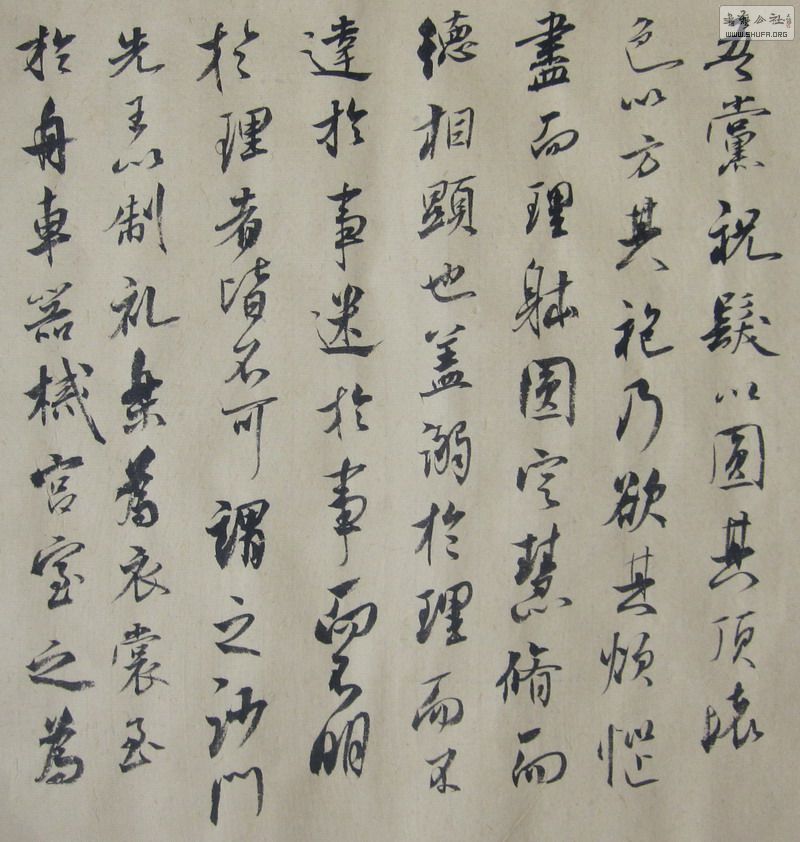 吾黨祝髮以圓其頂壞
色以方其袍乃欲其煩惱
盡而理躰圓定慧脩而
德相顯也盖溺於理而不
達於事迷於事而不明
於理者皆不可謂之沙門
先王以制礼樂為衣裳至
於舟車器械宮室之為
書法公社
WWW.SHUFA.ORG